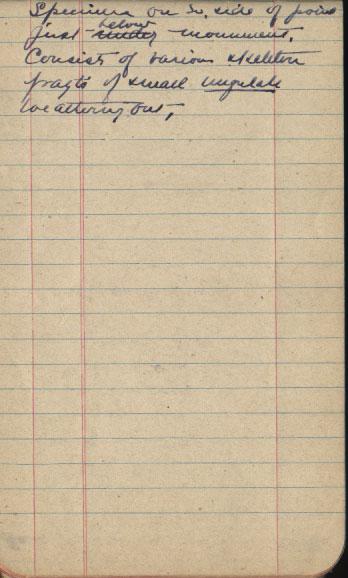 Specimen on S. side of point
just below under monument.
Consist of various skeleton
fragts of small ungulate
weathering out,